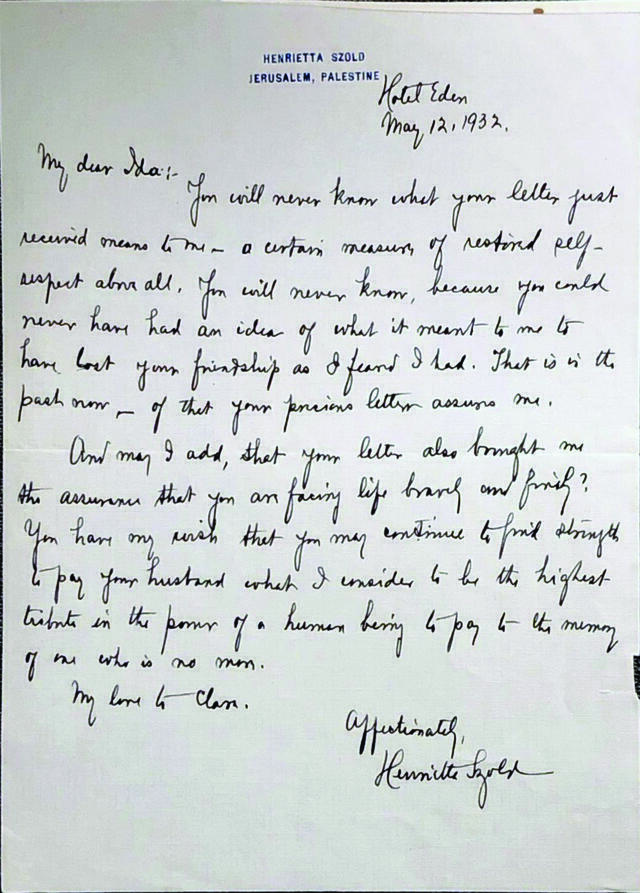 HENRIETTA SZOLD
JERUSALEM, PALESTINE
Hotel Eden
May 12, 1932.
My dear Ida:-
You will never know what your letter just
received means to me – a certain measure of restored self-
respect above all. You will never know, because you could
never have had an idea of what it meant to me to
have lost your friendship as I feared I had. That is in the
past now, – of that your precious letter assures me.
And may I add, that your letter also brought me
the assurance that you are facing life bravely and finely?
You have my wish that you may continue to find strength
to pay your husband what I consider to be the highest
tribute in the power of a human being to pay to the memory
of one who is no more.
My love to Clara.
Affectionately,
Henrietta Szold